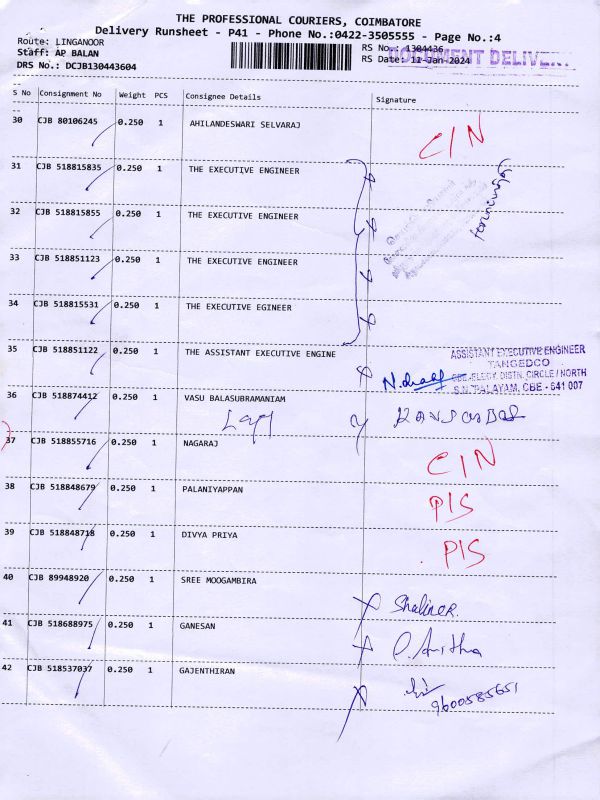 THE PROFESSIONAL COURIERS, COIMBATORE
Delivery Runsheet - P41 - Phone No.:0422-3505555 - Page No.:4
Route: LINGANOOR RS No.: 1304436
Staff: AP BALAN RS Date: 11-Jan-2024
DOCUMENT DELIVER
DRS No.: DCJB130443604
S No Consignment No Weight PCS Consignee Details Signature
30 CJB 80106245 0.250 1 AHILANDESWARI SELVARAJ CIN
31 CJB 518815835 0.250 1 THE EXECUTIVE ENGINEER
32 CJB 518815855 0.250 1 THE EXECUTIVE ENGINEER
33 CJB 518851123 0.250 1 THE EXECUTIVE ENGINEER
34 CJB 518815531 0.250 1 THE EXECUTIVE EGINEER
35 CJB 518851122 0.250 1 THE ASSISTANT EXECUTIVE ENGINE
ASSISTANT EXECUTIVE ENGINEER
TANGEDCO
CBE .ELECY. DISTN. CIRCLE / NORTH
S.N. PALAYAM, CBE - 641 007
36 CJB 518874412 0.250 1 VASU BALASUBRAMANIAM
37 CJB 518855716 0.250 1 NAGARAJ CIN
38 CJB 518848679 0.250 1 PALANIYAPPAN PIS
39 CJB 518848718 0.250 1 DIVYA PRIYA PIS
40 CJB 89948920 0.250 1 SREE MOOGAMBIRA
41 CJB 518688975 0.250 1 GANESAN P. Anitha
42 CJB 518537037 0.250 1 GAJENTHIRAN
9600585651